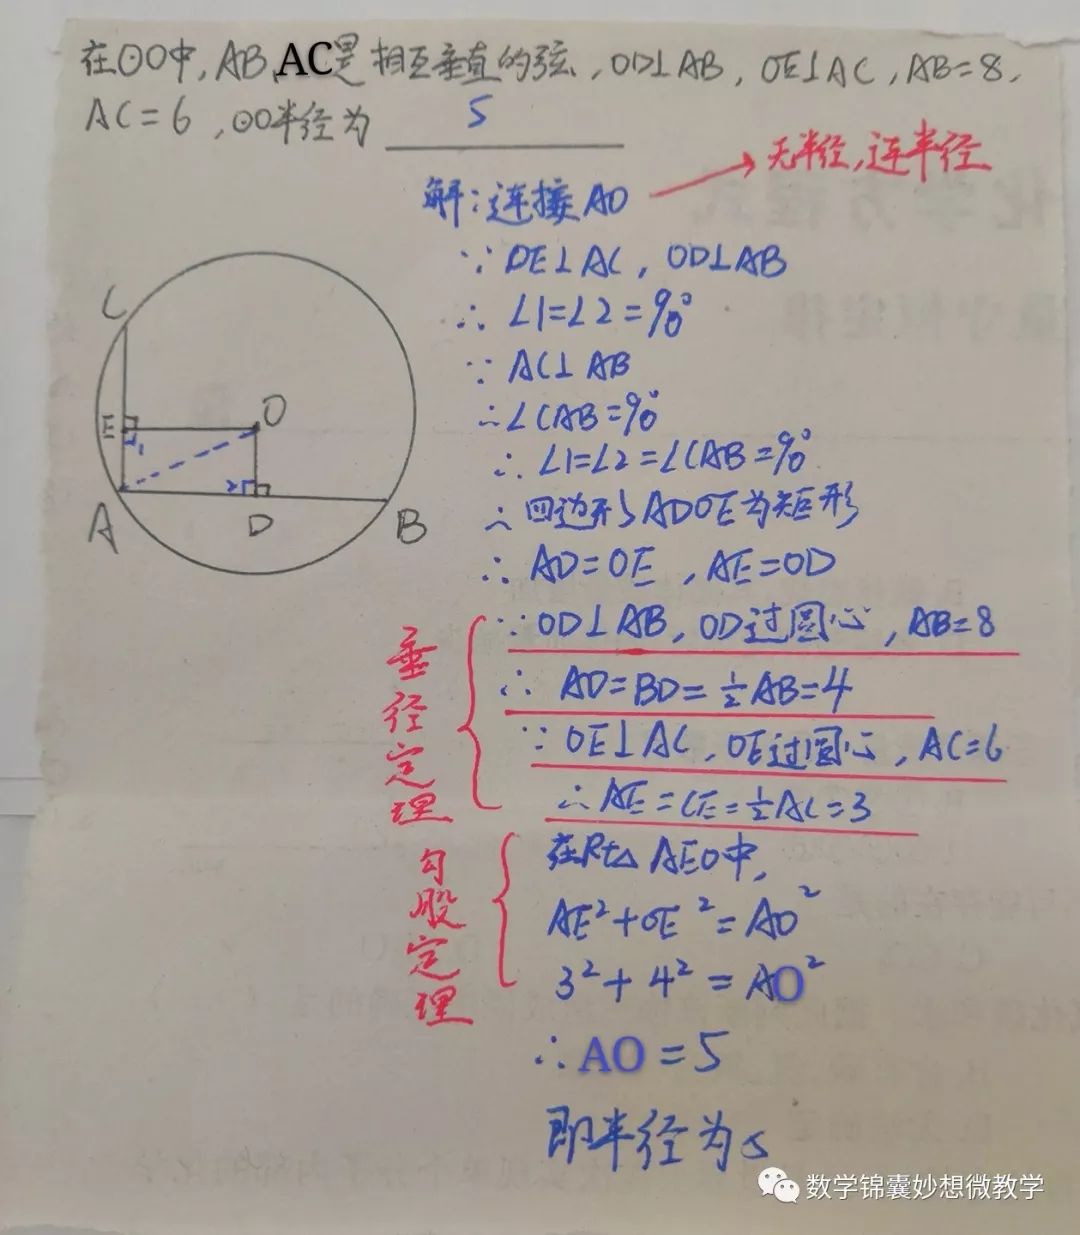 在⊙O中,AB,AC是相互垂直的弦,OD⊥AB,OE⊥AC,AB=8,
AC=6,⊙O半径为 5
无半径,连半径
解:连接AO
∵OE⊥AC,OD⊥AB
∴∠1=∠2=90°
∵AC⊥AB
∴∠CAB=90°
∴∠1=∠2=∠CAB=90°
∴四边形ADOE为矩形
∴AD=OE,AE=OD
∵OD⊥AB,OD过圆心,AB=8
∴AD=BD=½AB=4
∵OE⊥AC,OE过圆心,AC=6
∴AE=CE=½AC=3
垂径定理
在Rt△AEO中,
AE²+OE²=AO²
3²+4²=AO²
勾股定理
∴AO=5
即半径为5
C
E
1
O
2
A
D
B
数学锦囊妙想微教学